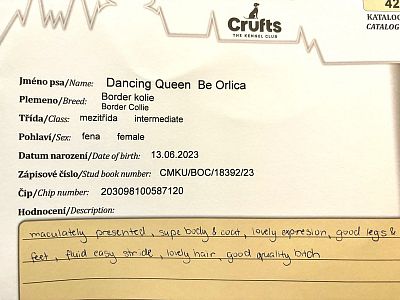 42
Crufts
THE KENNEL CLUB
KATALOG
CATALOG
Jméno psa/Name: Dancing Queen Be Orlica
Plemeno/Breed: Border kolie
Border Collie
Třída/Class: mezitřída intermediate
Pohlaví/Sex: fena female
Datum narození/Date of birth: 13.06.2023
Zápisové číslo/Stud book number: CMKU/BOC/18392/23
Čip/Chip number: 203098100587120
Hodnocení/Description:
maculately presented, supe body & coat, lovely expresion, good legs &
feet, fluid easy stride, lovely hair, good quality bitch